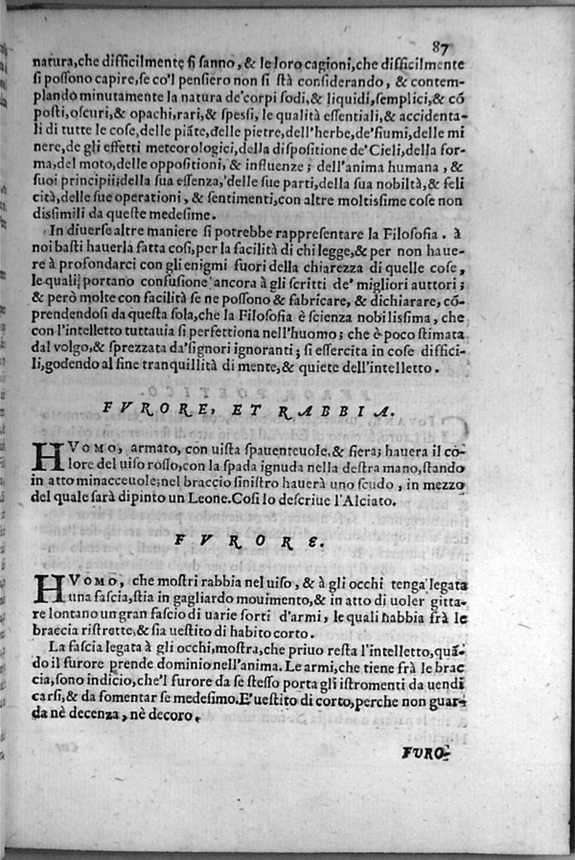 87
natura, che difficilmente si sanno, & le loro cagioni, che difficilmente
si possono capire, se co'l pensiero non si stà considerando, & contem-
plando minutamente la natura de' corpi sodi, & liquidi, semplici, & cō
posti, oscuri, & opachi, rari, & spessi, le qualità essentiali, & accidenta-
li di tutte le cose, delle piāte, delle pietre, dell'herbe, de' fiumi, delle mi
nere, de gli effetti meteorologici, della dispositione de' Cieli, della for-
ma, del moto, delle oppositioni, & influenze; dell'anima humana, &
suoi principii; della sua essenza, delle sue parti, della sua nobiltà, & feli
cità, delle sue operationi, & sentimenti, con altre moltissime cose non
dissimili da queste medesime.
In diuerse altre maniere si potrebbe rappresentare la Filosofia. à
noi basti hauerla fatta così, per la facilità di chi legge, & per non haue-
re à profondarci con gli enigmi fuori della chiarezza di quelle cose,
le quali portano confusione ancora à gli scritti de' migliori auttori;
& però molte con facilità se ne possono & fabricare, & dichiarare, cō-
prendendosi da questa sola, che la Filosofia è scienza nobilissima, che
con l'intelletto tuttauia si perfettiona nell'huomo; che è poco stimata
dal volgo, & sprezzata da' signori ignoranti; si essercita in cose diffici-
li, godendo al fine tranquillità di mente, & quiete dell'intelletto.
FVRORE, ET RABBIA.
HVOMO, armato, con uista spauenteuole, & fiera; hauera il co-
lore del uiso rosso, con la spada ignuda nella destra mano, stando
in atto minacceuole; nel braccio sinistro hauerà uno scudo, in mezzo
del quale sarà dipinto un Leone. Così lo descriue l'Alciato.
FVRORE.
HVOMO, che mostri rabbia nel uiso, & à gli occhi tenga legata
una fascia, stia in gagliardo mouimento, & in atto di uoler gitta-
re lontano un gran fascio di uarie sorti d'armi, le quali habbia frà le
braccia ristrette, & sia uestito di habito corto.
La fascia legata à gli occhi, mostra, che priuo resta l'intelletto, quā-
do il furore prende dominio nell'anima. Le armi, che tiene frà le brac
cia, sono indicio, che'l furore da se stesso porta gli istromenti da uendi
carsi, & da fomentar se medesimo. E' uestito di corto, perche non guar-
da nè decenza, nè decoro.
FVRO-